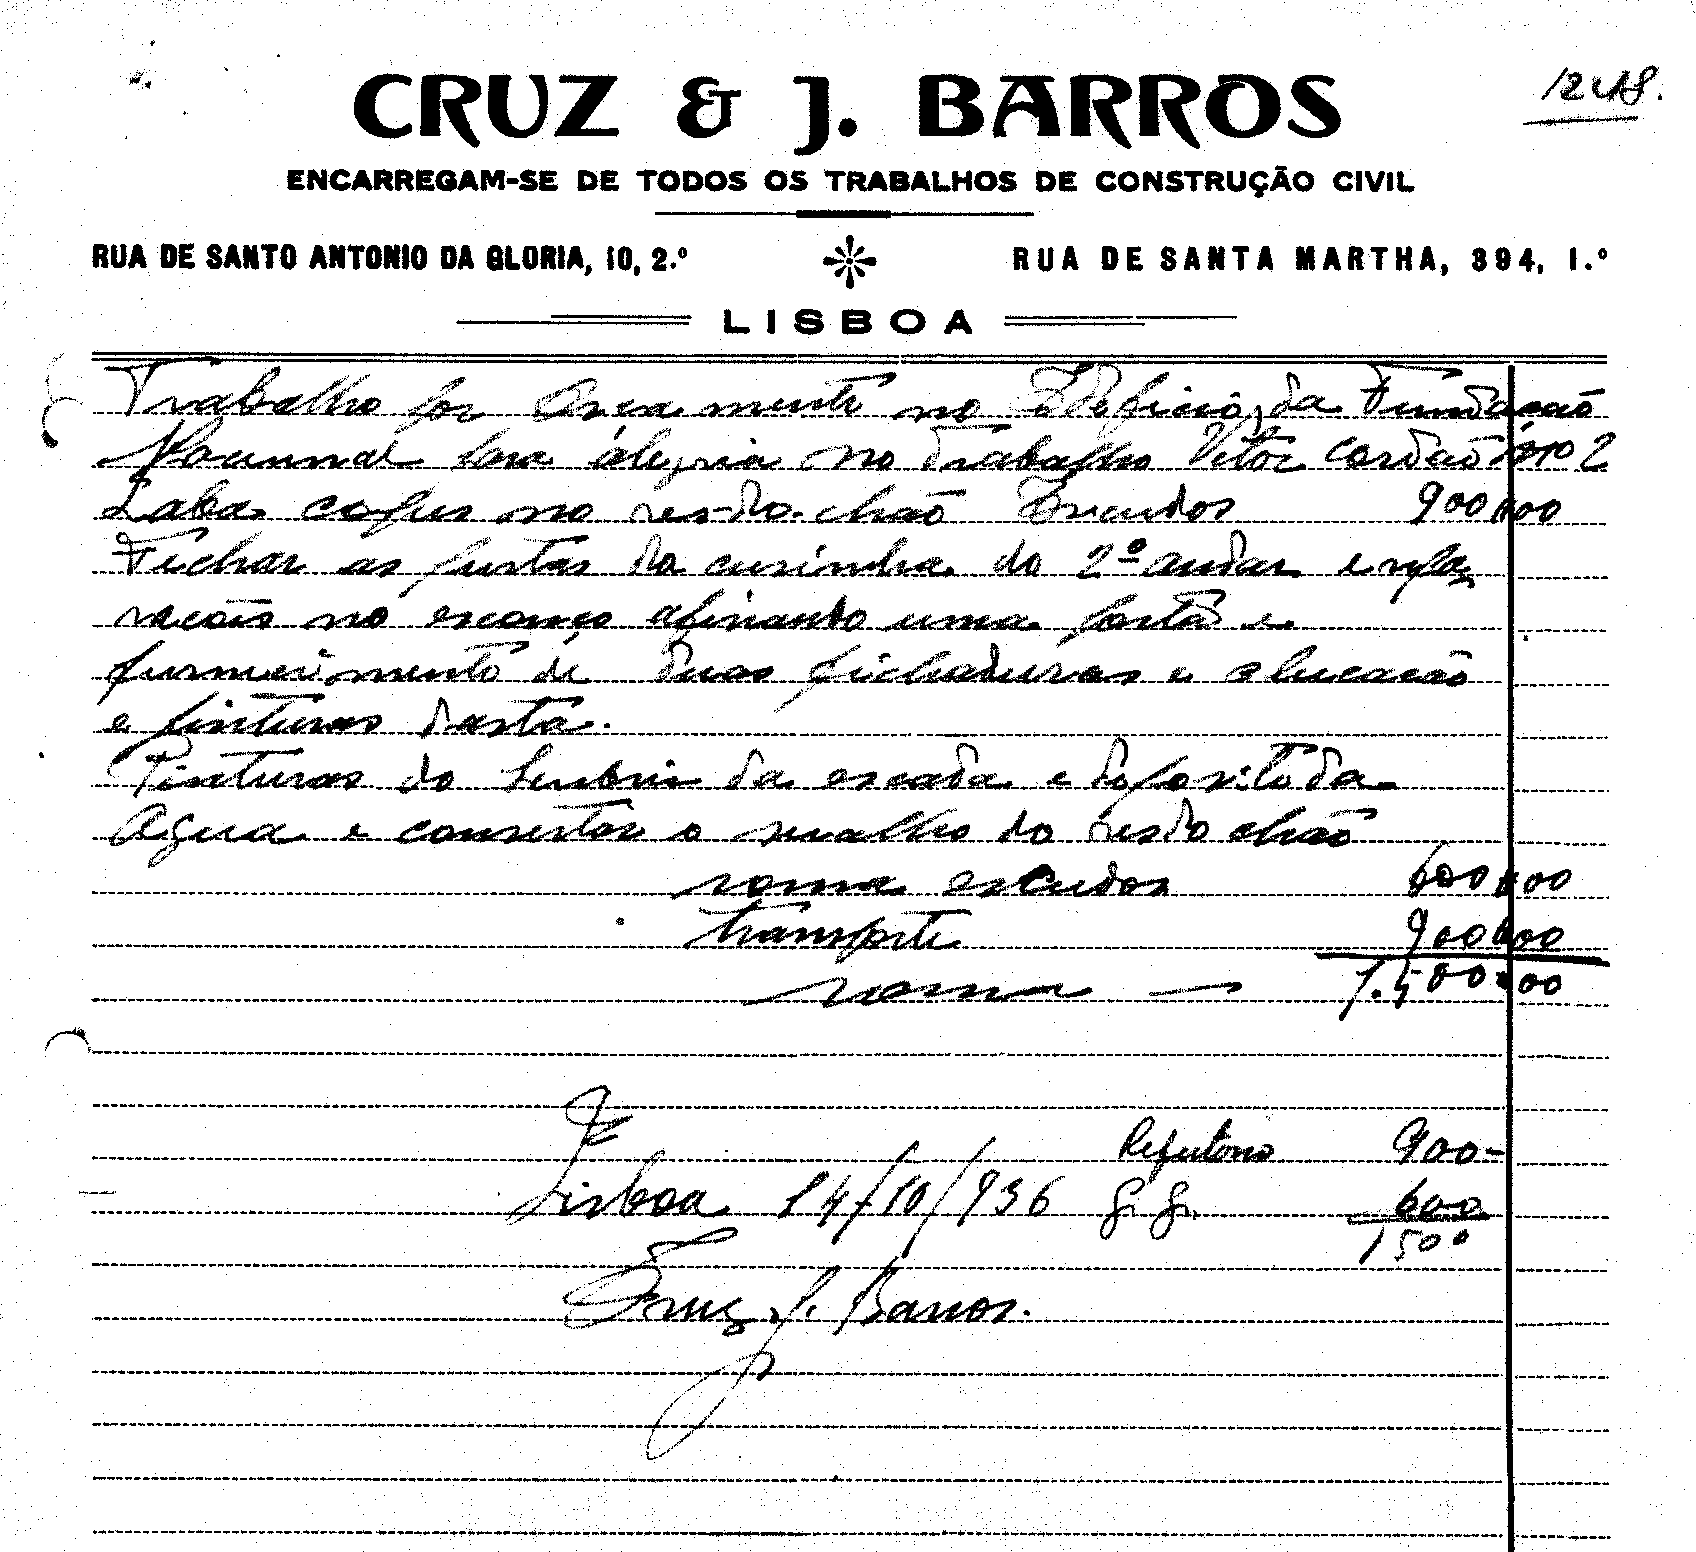 12418.
CRUZ & J. BARROS
ENCARREGAM-SE DE TODOS OS TRABALHOS DE CONSTRUÇÃO CIVIL
RUA DE SANTO ANTONIO DA GLORIA, 10, 2.º
RUA DE SANTA MARTHA, 394, 1.º
LISBOA
Trabalho por Orcamento no Edeficio da Fundacão
Nacunal para álegria no Trabalho Vitor Cordão 2
Laba copus no res-do-chão Escudos 900$00
Fechar as portas da cusinha do 2º andar e repa
racois no escanço afinando uma porta e
furnecimento de duas fichaduras e colucacão
e pinturas dasta.
Pinturas do da escada e deposito da
Agua e consertar o sualho do resdo chão
soma escudos 600$00
transporte 900$00
soma — 1.500$00
Lisboa 14/10/936
Refeitorio 900-
600
1500
Cruz J. Barros.